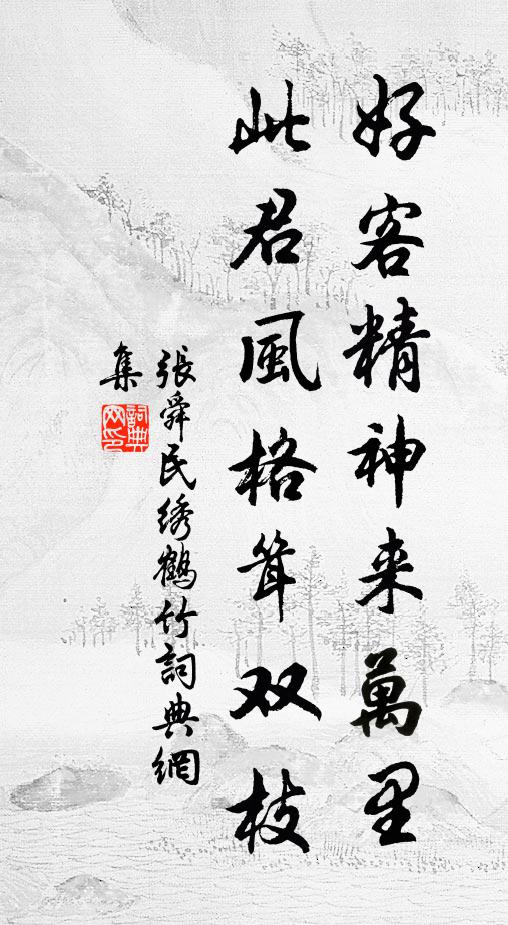 好客精神来萬里
此君風格聳双枝
張舜民绣鶴竹詞典網
集
詞典
网印